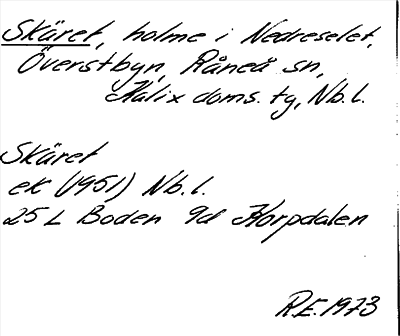 Skäret, holme i Nedreselet,
Överstbyn, Råneå sn,
Kalix doms. tg, Nb. l.
Skäret
ek (1951) Nb. l.
25 L Boden 9d Korpdalen
R.E. 1973